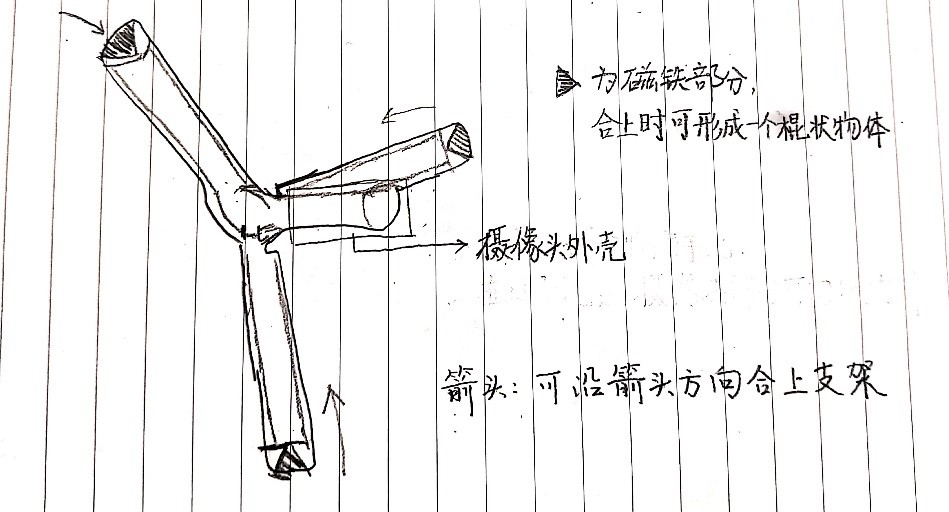 为磁铁部分,
合上时可形成一个棍状物体
摄像头外壳
箭头:可沿箭头方向合上支架